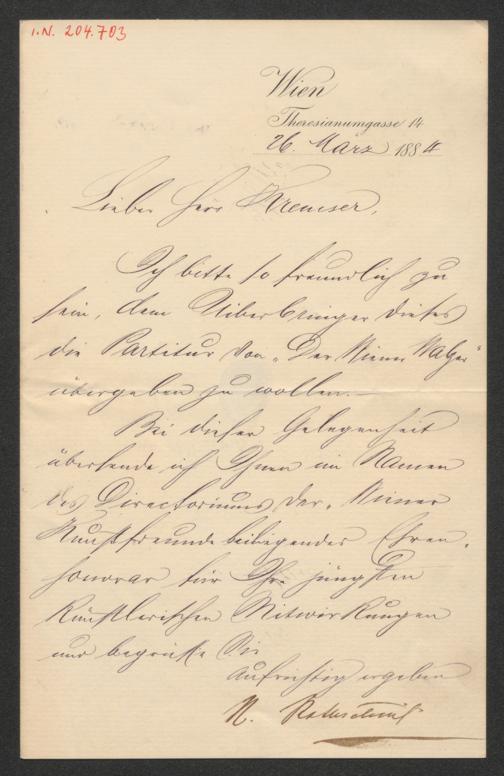 I.N. 204.703
Wien
Theresianumgasse 14
26. März 1884
Lieber Herr Kremser,
Ich bitte so freundlich zu
sein, dem Überbringer dieses
die Partitur von „Der Wiener Walzer“
übergeben zu wollen. –
Bei dieser Gelegenheit
übersende ich Ihnen im Namen
des Directoriums der „Wiener
Kunstfreunde beiliegendes Ehren-
honorar für Ihre jüngsten
künstlerischen Mitwirkungen
und begrüße Sie
Aufrichtig ergeben
N. Rothschild